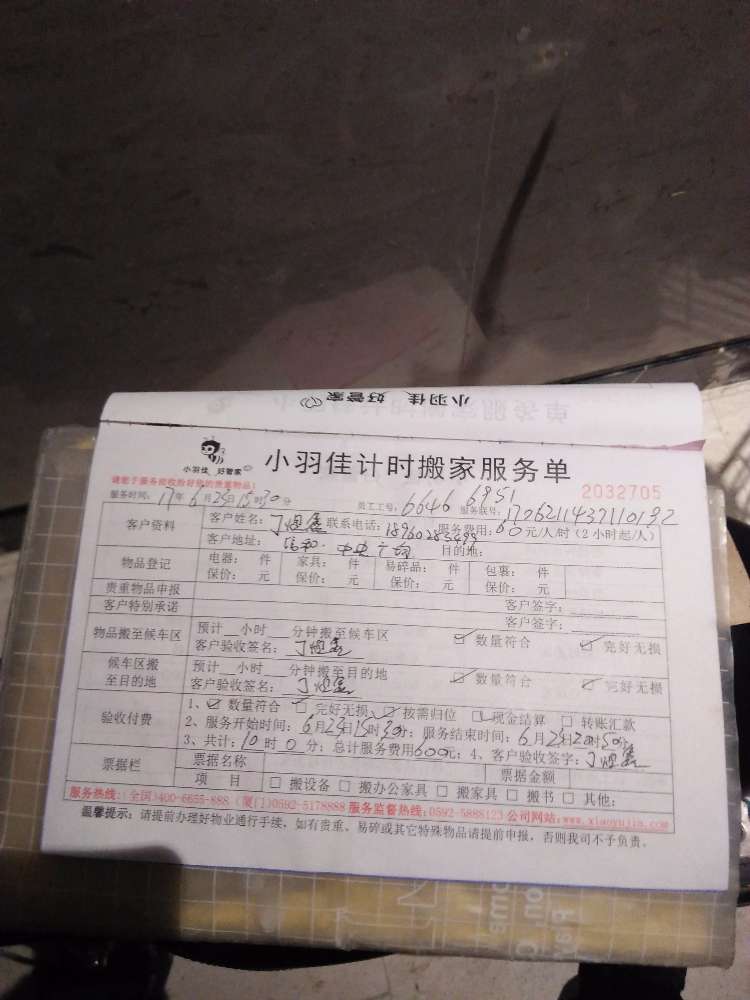 小羽佳 好管家
小羽佳 好管家
小羽佳计时搬家服务单
请您于服务前收拾好您的贵重物品!
2032705
服务时间: 17年 6月25日15时30分 员工工号: 6646 6951 服务联号:
客户资料 客户姓名: 联系电话: 服务费用: 60元/人/时(2小时起/人)
客户地址: 中央广场 目的地:
物品登记 电器: 件 家具: 件 易碎品: 件 包裹: 件
保价: 元 保价: 元 保价: 元 保价: 元
贵重物品申报 客户签字:
客户特别承诺 客户签字:
物品搬至候车区 预计 小时 分钟搬至候车区 ☑ 数量符合 ☑ 完好无损
客户验收签名:
候车区搬至目的地 预计 小时 分钟搬至目的地 ☑ 数量符合 ☑ 完好无损
客户验收签名:
验收付费 1、☑ 数量符合 ☑ 完好无损 ☑ 按需归位 ☑ 现金结算 □ 转账汇款
2、服务开始时间: 6月 日15时30分; 服务结束时间: 6月 日20时50分
3、共计: 10时 0分; 总计服务费用600元; 4、客户验收签字:
票据栏 票据名称 票据金额
项 目 □ 搬设备 □ 搬办公家具 □ 搬家具 □ 搬书 □ 其他:
服务热线:(全国)400-6655-888 (厦门)0592-5178888 服务监督热线:0592-5888123 公司网站:www.xiaoyujia.com
温馨提示: 请提前办理好物业通行手续, 如有贵重、易碎或其它特殊物品请提前申报, 否则我司不予负责。